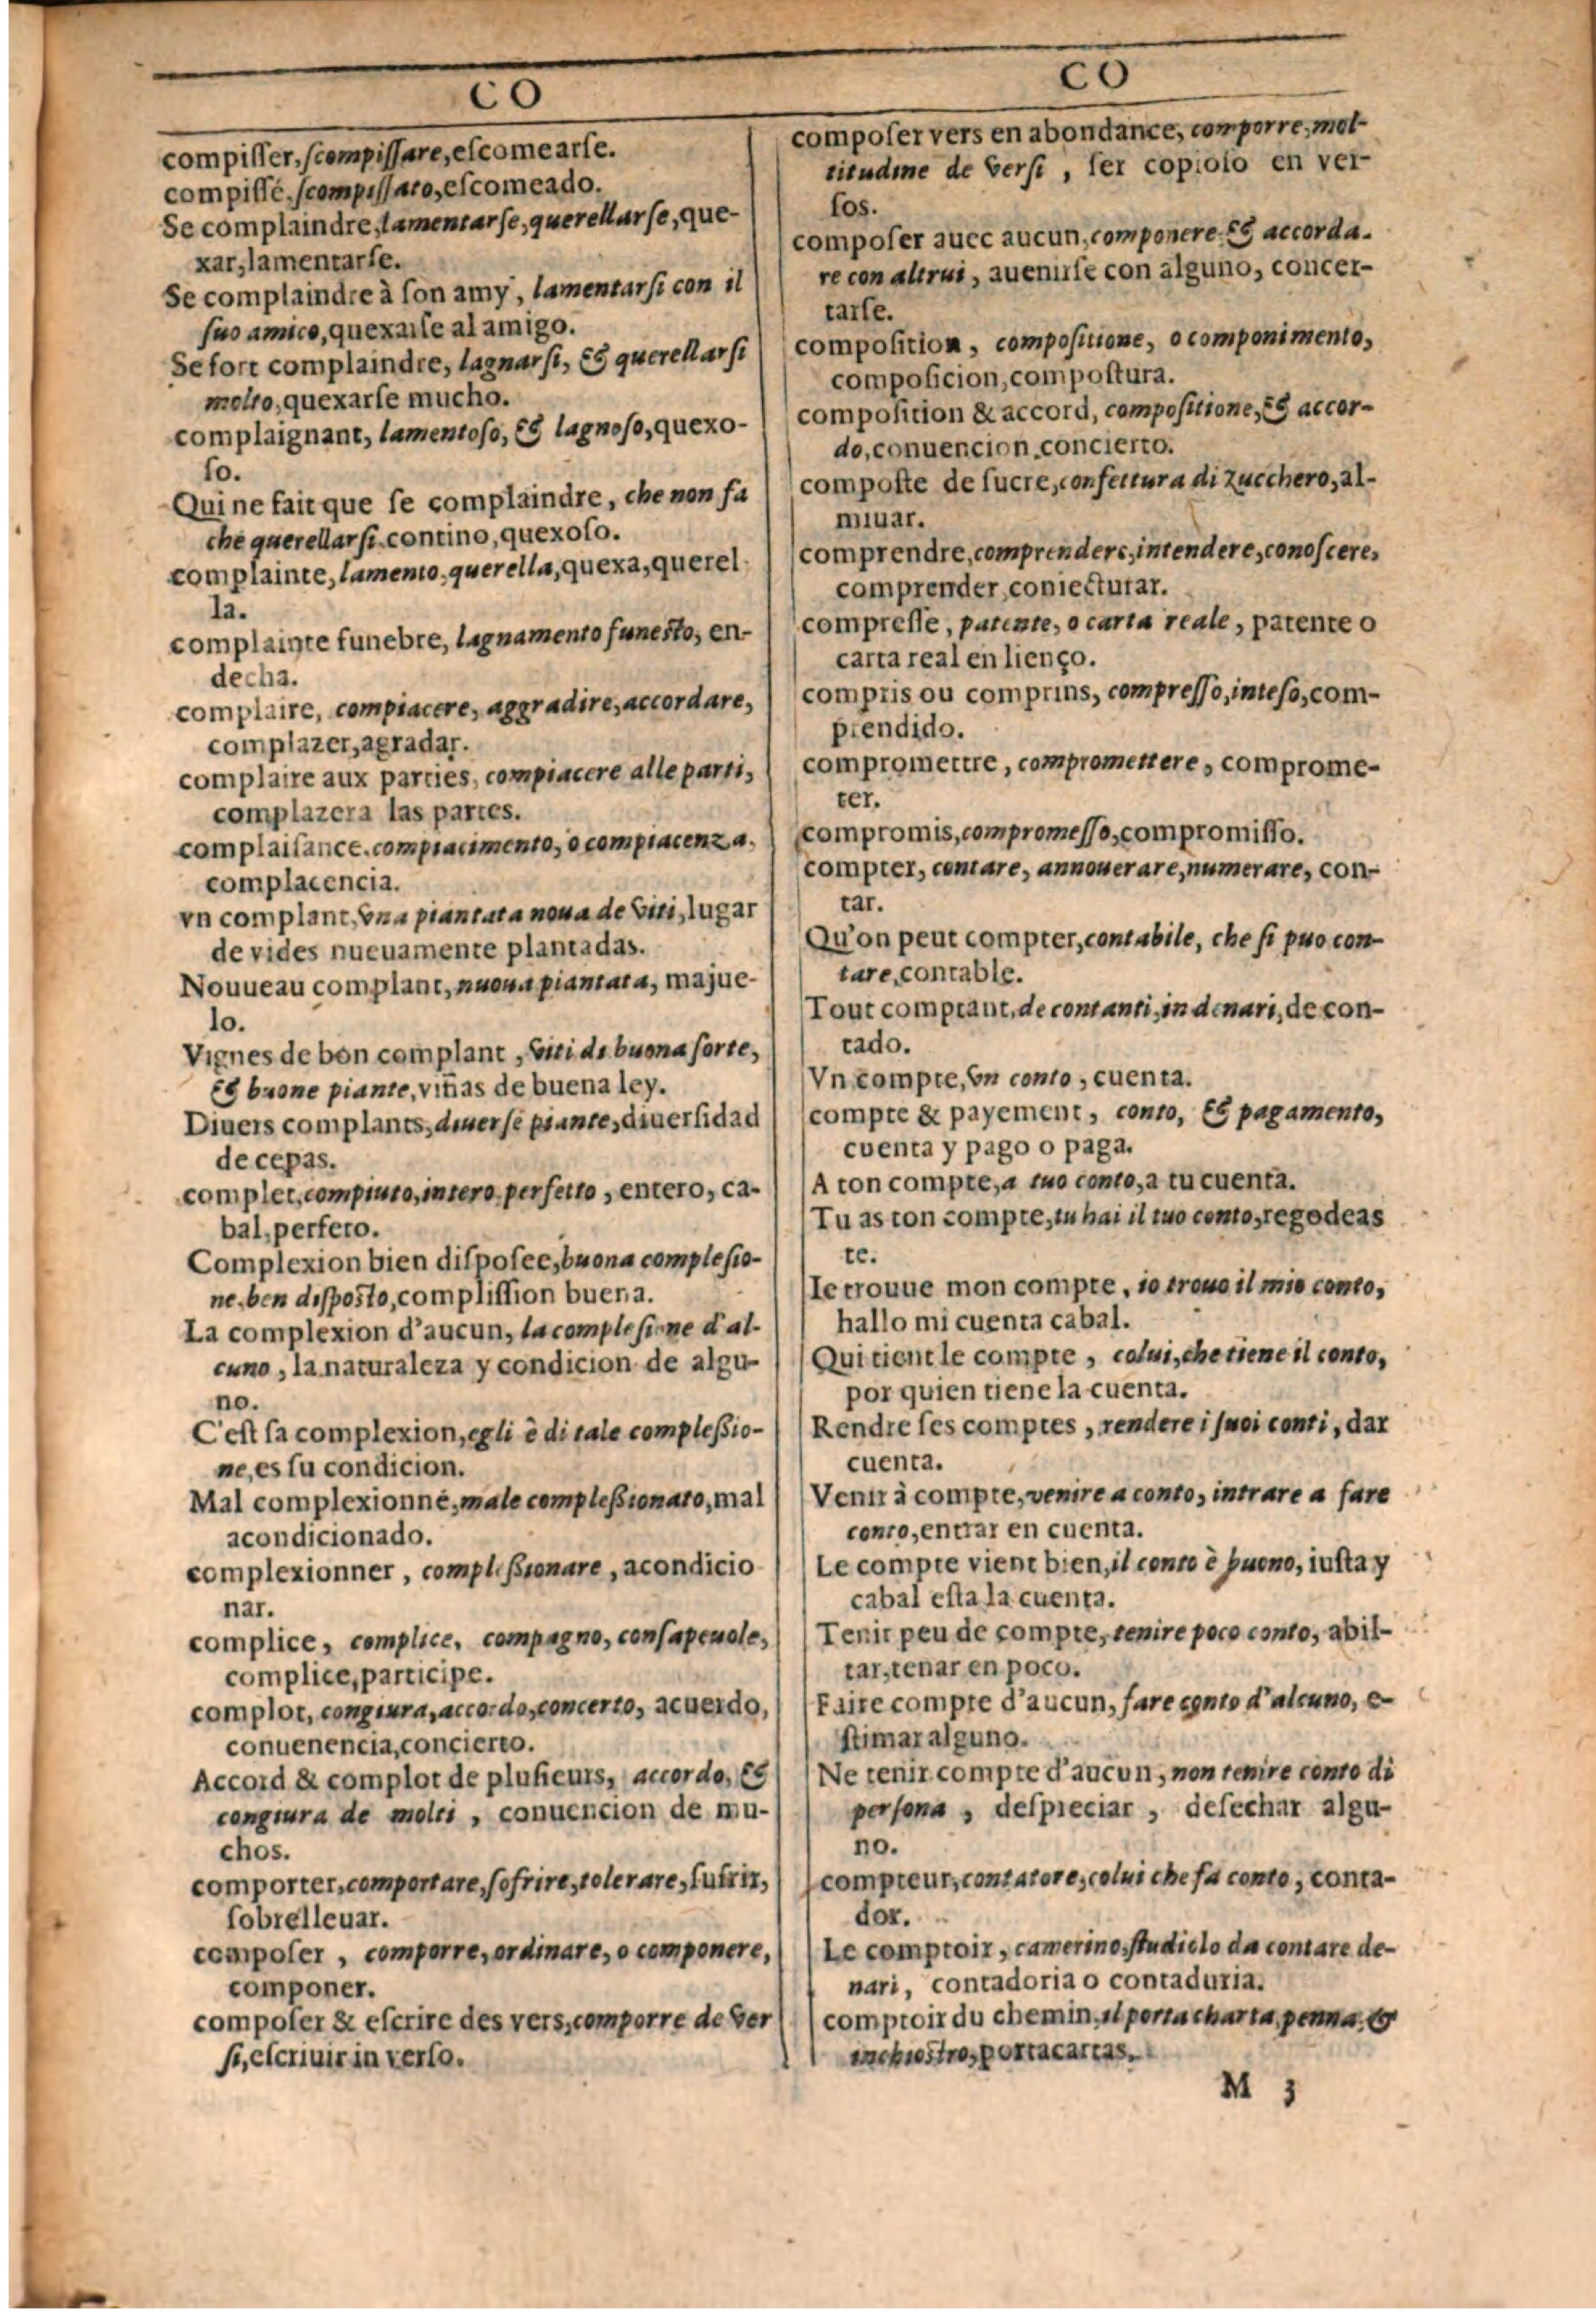 CO
compiſſer, ſcompiſſare, eſcomearſe.
compiſſé, ſcompiſſato, eſcomeado.
Se complaindre, lamentarſe, querellarſe, que-
xar, lamentarſe.
Se complaindre à ſon amy, lamentarſi con il
ſuo amico, quexarſe al amigo.
Se fort complaindre, lagnarſi, & querellarſi
molto, quexarſe mucho.
complaignant, lamentoſo, & lagnoſo, quexo-
ſo.
Qui ne fait que ſe complaindre, che non fa
che querellarſi contino, quexoſo.
complainte, lamento, querella, quexa, querel
la.
complainte funebre, lagnamento funeſto, en-
decha.
complaire, compiacere, aggradire, accordare,
complazer, agradar.
complaire aux parties, compiacere alle parti,
complazera las partes.
complaiſance, compiacimento, o compiacenza,
complacencia.
vn complant, vna piantata noua de viti, lugar
de vides nueuamente plantadas.
Nouueau complant, nuoua piantata, majue-
lo.
Vignes de bon complant, viti di buona ſorte,
& buone piante, viñas de buena ley.
Diuers complants, diuerſe piante, diuerſidad
de cepas.
complet, compiuto, intero, perfetto, entero, ca-
bal, perfeto.
Complexion bien diſpoſee, buona compleſio-
ne, ben diſpoſto, compliſſion buena.
La complexion d'aucun, la compleſione d'al-
cuno, la naturaleza y condicion de algu-
no.
C'eſt ſa complexion, egli è di tale compleſſio-
ne, es ſu condicion.
Mal complexionné, male compleſſionato, mal
acondicionado.
complexionner, compleſſionare, acondicio
nar.
complice, complice, compagno, conſapeuole,
complice, participe.
complot, congiura, accordo, concerto, acuerdo,
conuenencia, concierto.
Accord & complot de pluſieurs, accordo, &
congiura de molti, conuencion de mu-
chos.
comporter, comportare, ſofrire, tolerare, ſufrir,
ſobrelleuar.
compoſer, comporre, ordinare, o componere,
componer.
compoſer & eſcrire des vers, comporre de ver
ſi, eſcriuir in verſo.
CO
compoſer vers en abondance, comporre, mol-
titudine de verſi, ſer copioſo en ver-
ſos.
compoſer auec aucun, componere & accorda-
re con altrui, auenirſe con alguno, concer-
tarſe.
compoſition, compoſitione, o componimento,
compoſicion, compoſtura.
compoſition & accord, compoſitione, & accor-
do, conuencion, concierto.
compoſte de ſucre, confettura di zucchero, al-
miuar.
comprendre, comprendere, intendere, conoſcere,
comprender, coniecturar.
compreſſe, patente, o carta reale, patente o
carta real en lienço.
compris ou comprins, compreſſo, inteſo, com-
prendido.
compromettre, compromettere, comprome-
ter.
compromis, compromeſſo, compromiſſo.
compter, contare, annouerare, numerare, con-
tar.
Qu'on peut compter, contabile, che ſi puo con-
tare, contable.
Tout comptant, de contanti, in denari, de con-
tado.
Vn compte, vn conto, cuenta.
compte & payement, conto, & pagamento,
cuenta y pago o paga.
A ton compte, a tuo conto, a tu cuenta.
Tu as ton compte, tu hai il tuo conto, regodeas
te.
Ie trouue mon compte, io trouo il mio conto,
hallo mi cuenta cabal.
Qui tient le compte, colui, che tiene il conto,
por quien tiene la cuenta.
Rendre ſes comptes, rendere i ſuoi conti, dar
cuenta.
Venir à compte, venire a conto, intrare a fare
conto, entrar en cuenta.
Le compte vient bien, il conto è buono, iuſta y
cabal eſta la cuenta.
Tenir peu de compte, tenire poco conto, abil-
tar, tenar en poco.
Faire compte d'aucun, fare conto d'alcuno, e-
ſtimar alguno.
Ne tenir compte d'aucun, non tenire conto di
perſona, deſpreciar, deſechar algu-
no.
compteur, contatore, colui che fa conto, conta-
dor.
Le comptoir, camerino, ſtudiolo da contare de-
nari, contadoria o contaduria.
comptoir du chemin, il porta charta, penna, &
inchioſtro, portacartas.
M 3